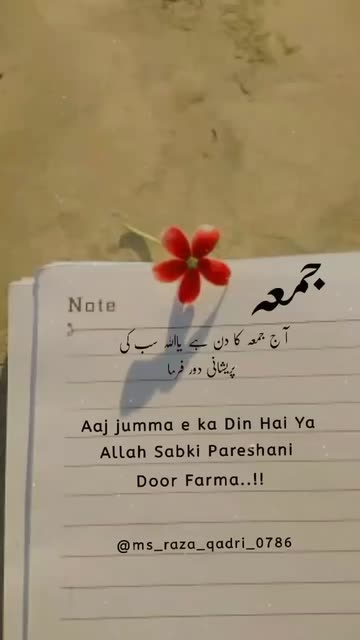 Note
جمعہ
آج جمعہ کا دن ہے یااللہ سب کی
پریشانی دور فرما
Aaj jumma e ka Din Hai Ya
Allah Sabki Pareshani
Door Farma..!!
@ms_raza_qadri_0786